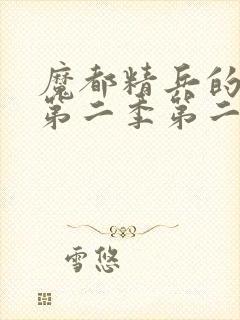 魔都精兵的
第二季第二
雪悠